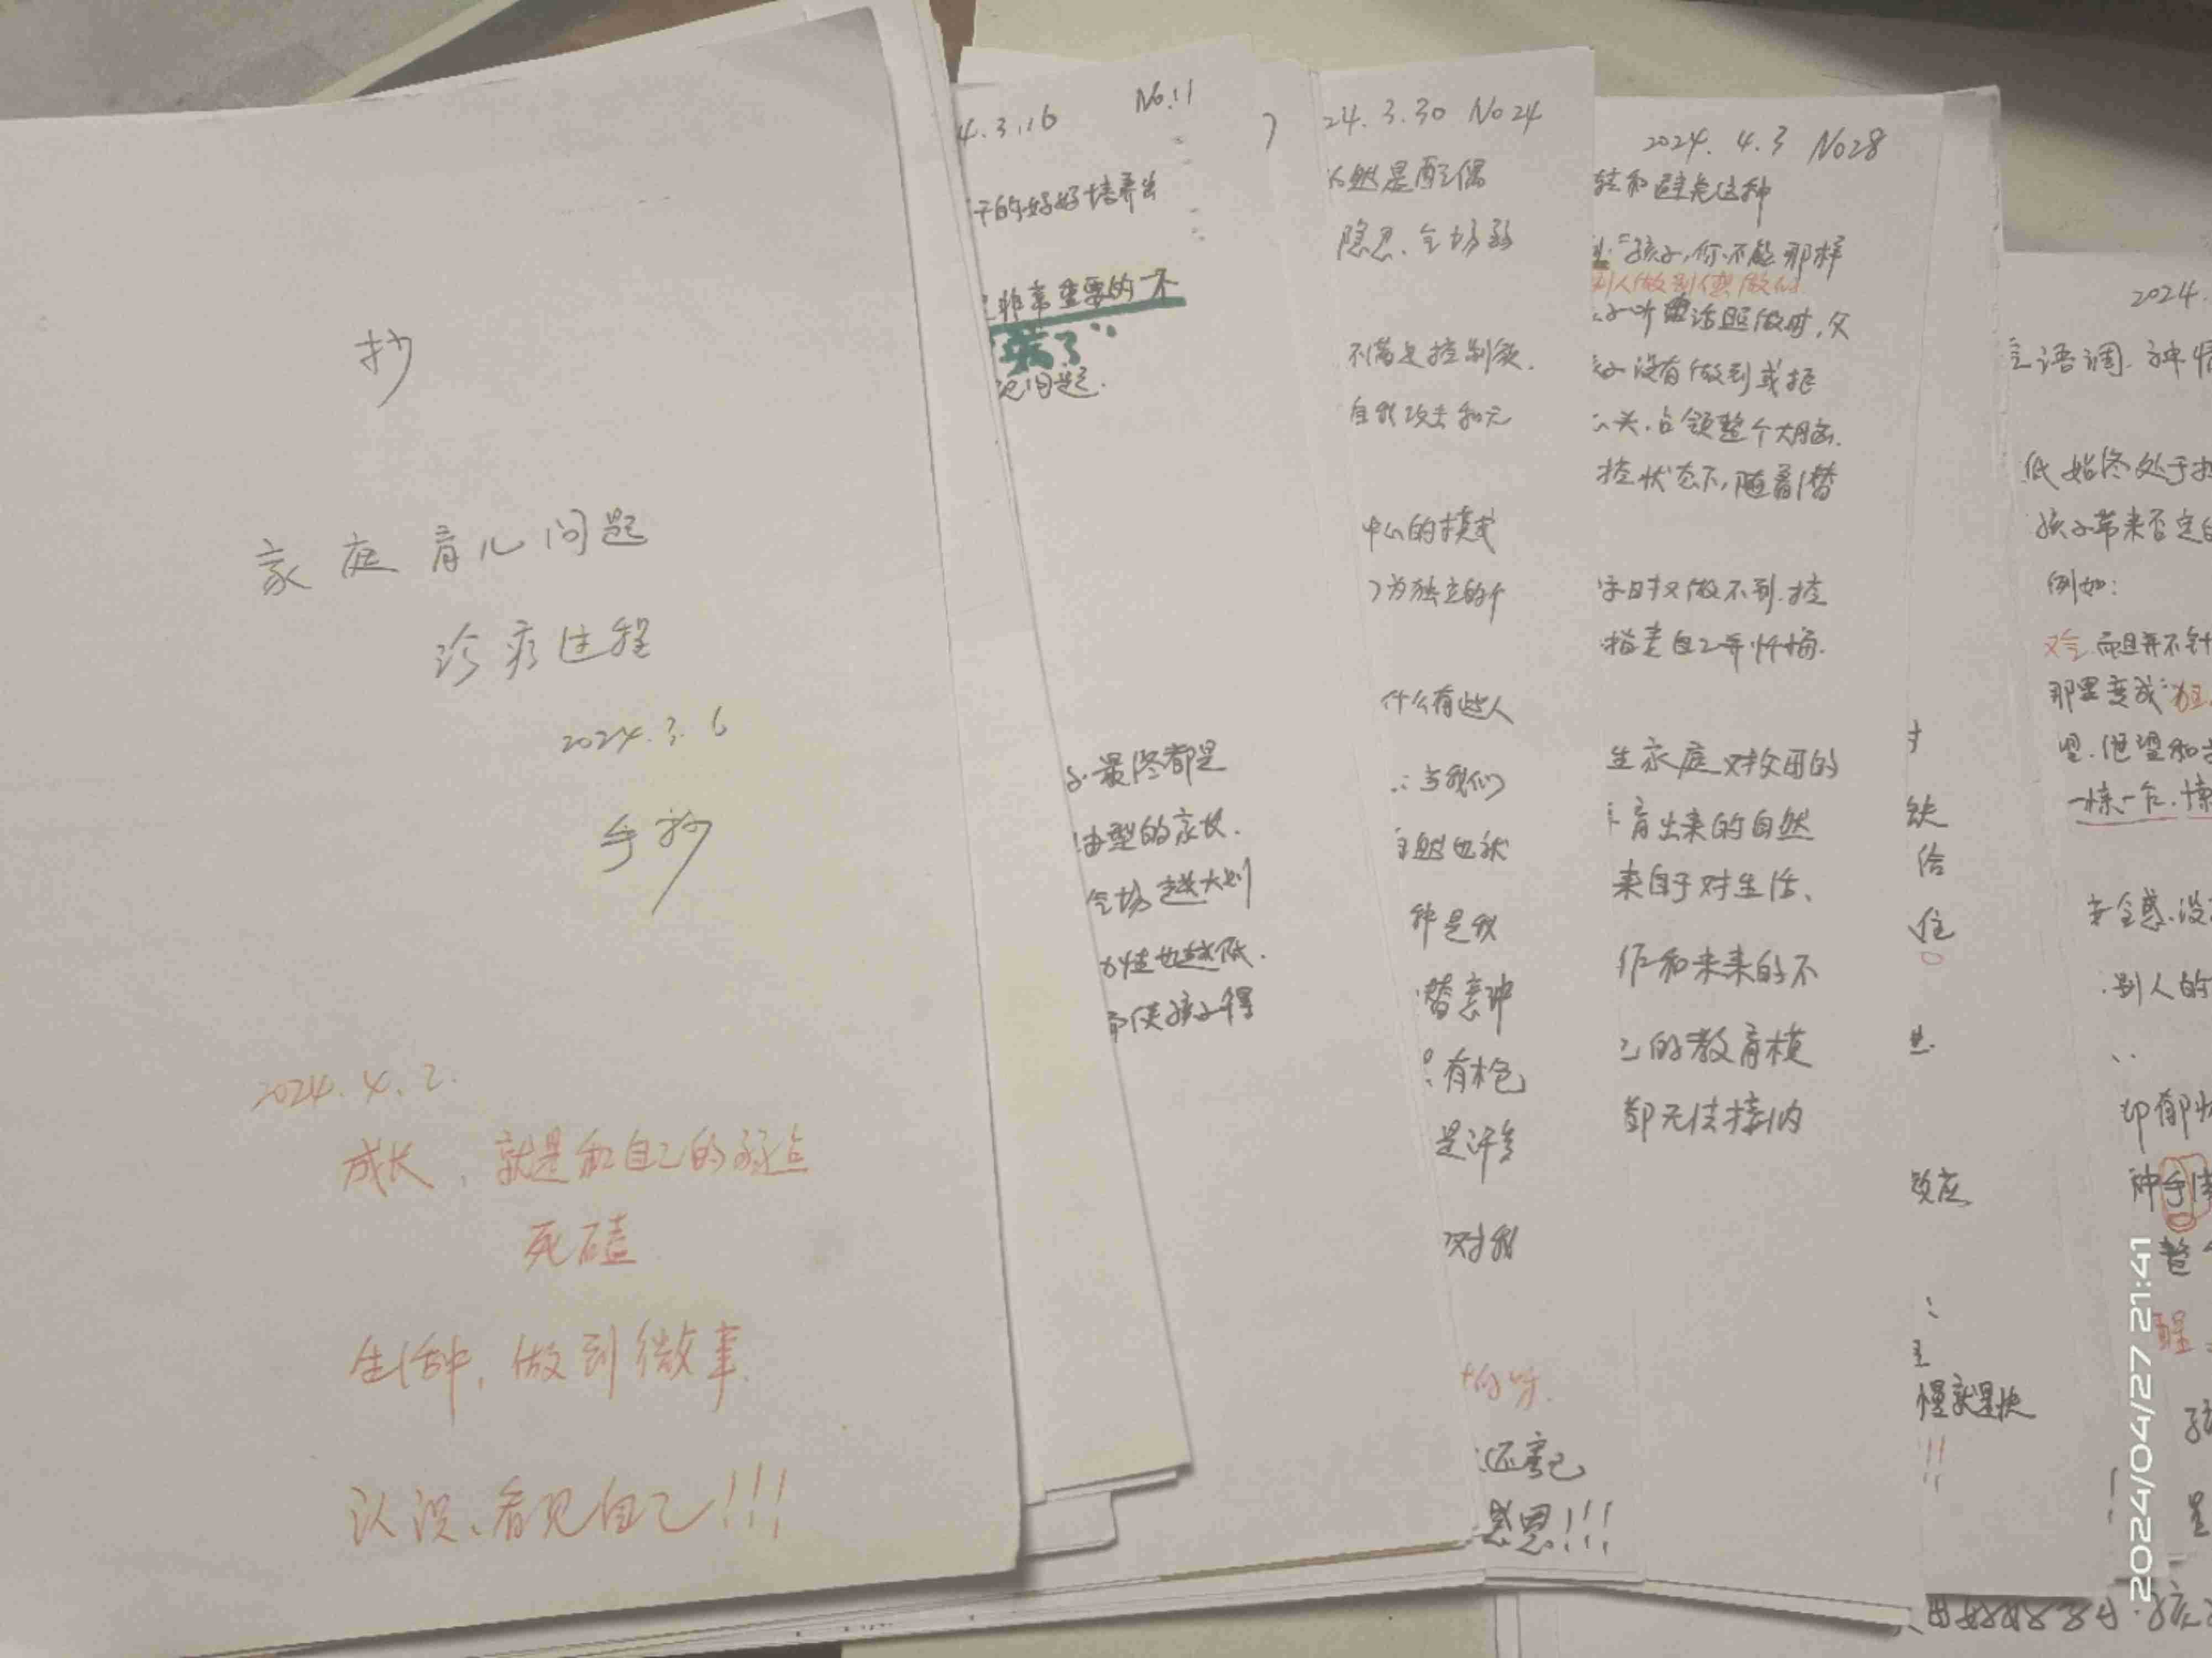 抄
家庭育儿问题
诊疗过程
2024.3.6
手抄
2024.4.2.
成长,就是和自己的弱点
死磕
生活中,做到微事.
认识、看见自己!!!
4.3.16 No.11
干的好好培养出
非常重要的一不
病了”
问题.
最终都是
型的家长.
气场越大
性也越低.
使孩子得
24.3.30 No24
然是配偶
隐忍.气场弱
不满足控制欲.
自我攻击和无
中心的模式
为独立的个
什么有些人
与我们
自然也就
种是我
替意冲
有包
是许多
对我
还害己
感恩!!!
2024.4.3 No28
和避免这种
“孩子,你不能那样
别人做别做的.
听话照做时,父
没有做到或拒
头.占领整个大脑.
控状态下,随着潜
又做不到.控
指责自己并忏悔.
生家庭对牧田的
育出来的自然
来自于对生活、
作和未来的不
己的教育模
都无法接纳
缺
给
住
效应
慢就是快
!!
2024.
语调.神情
低 始终处于
孩子带来否定的
例如:
而且并不
那里变成“
望.绝望和
安全感.没
别人的
抑郁
种
醒
2024/04/27 21:41